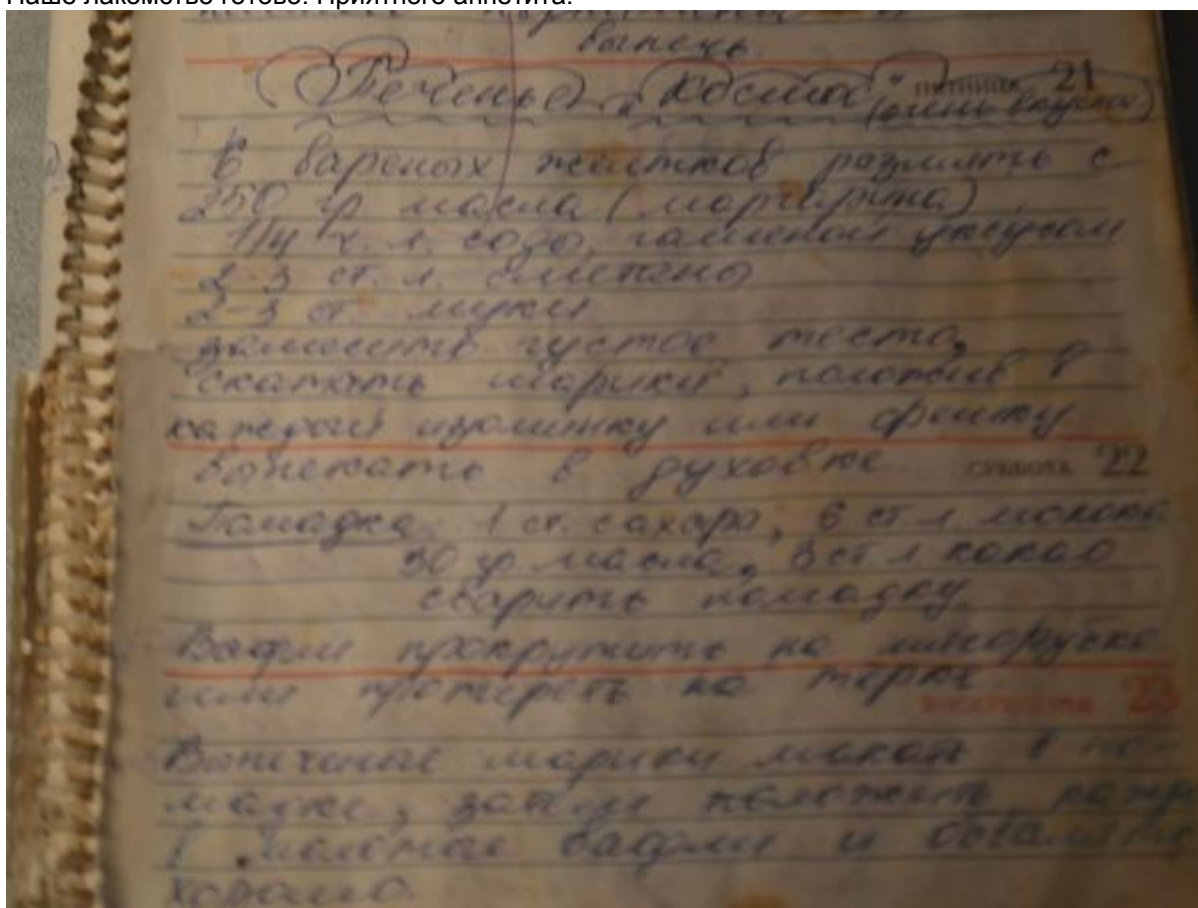 Наше лакомство готово! Приятного аппетита!
выпечь.
Печенье "Космос" (очень вкусное)
ПЯТНИЦА 21
6 вареных желтков размять с
250 гр. масла (маргарина)
1/4 ч. л. соды, гашеной уксусом
2-3 ст. л. сметаны
2-3 ст. муки
замесить густое тесто,
скатать шарики, положив в
каждый изюминку или
выпекать в духовке
СУББОТА 22
Помадка 1 ст. сахара, 6 ст. л. молока
30 гр. масла, 3 ст. л. какао
сварить помадку.
Вафли прокрутить на мясорубке
или протереть на терке.
ВОСКРЕСЕНЬЕ 23
Выпеченные шарики макать в по-
мадке, затем положить
в молотые вафли и обвалять
хорошо.